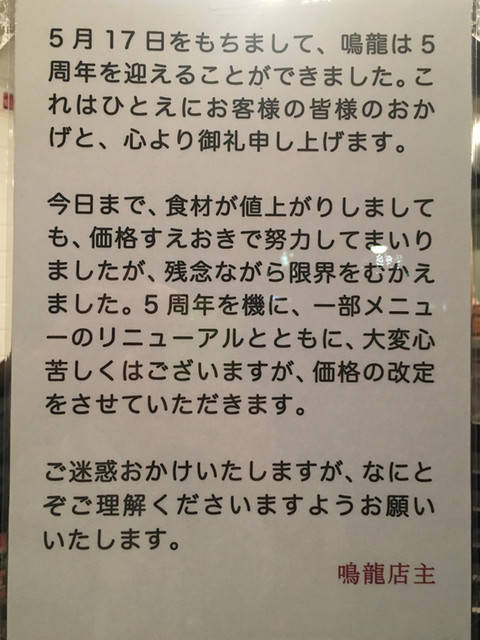 5月17日をもちまして、鳴龍は5
周年を迎えることができました。こ
れはひとえにお客様の皆様のおか
げと、心より御礼申し上げます。
今日まで、食材が値上がりしまして
も、価格すえおきで努力してまいり
ましたが、残念ながら限界をむかえ
ました。5周年を機に、一部メニュ
ーのリニューアルとともに、大変心
苦しくはございますが、価格の改定
をさせていただきます。
ご迷惑おかけいたしますが、なにと
ぞご理解くださいますようお願い
いたします。
鳴龍店主